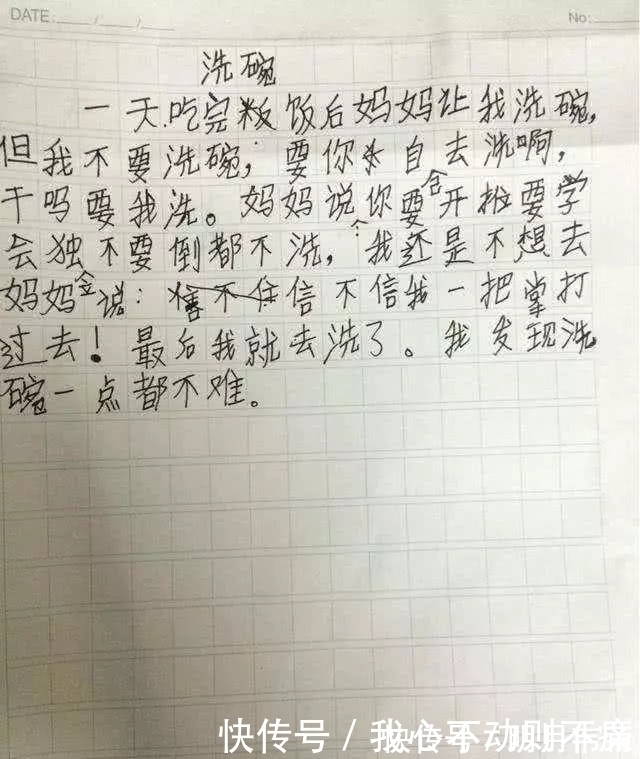 DATE: / /
No:
洗碗
一天.吃完粄饭后妈妈让我洗碗,
但我不要洗碗; 要你自去洗啊,
干吗要我洗。妈妈说你要合开始要学
会独不要倒都不洗,个我还是不想去
妈妈金说:信不信我一把掌打
过去!最后我就去洗了。我发现洗
碗一点都不难。
快传号/我心不动则不